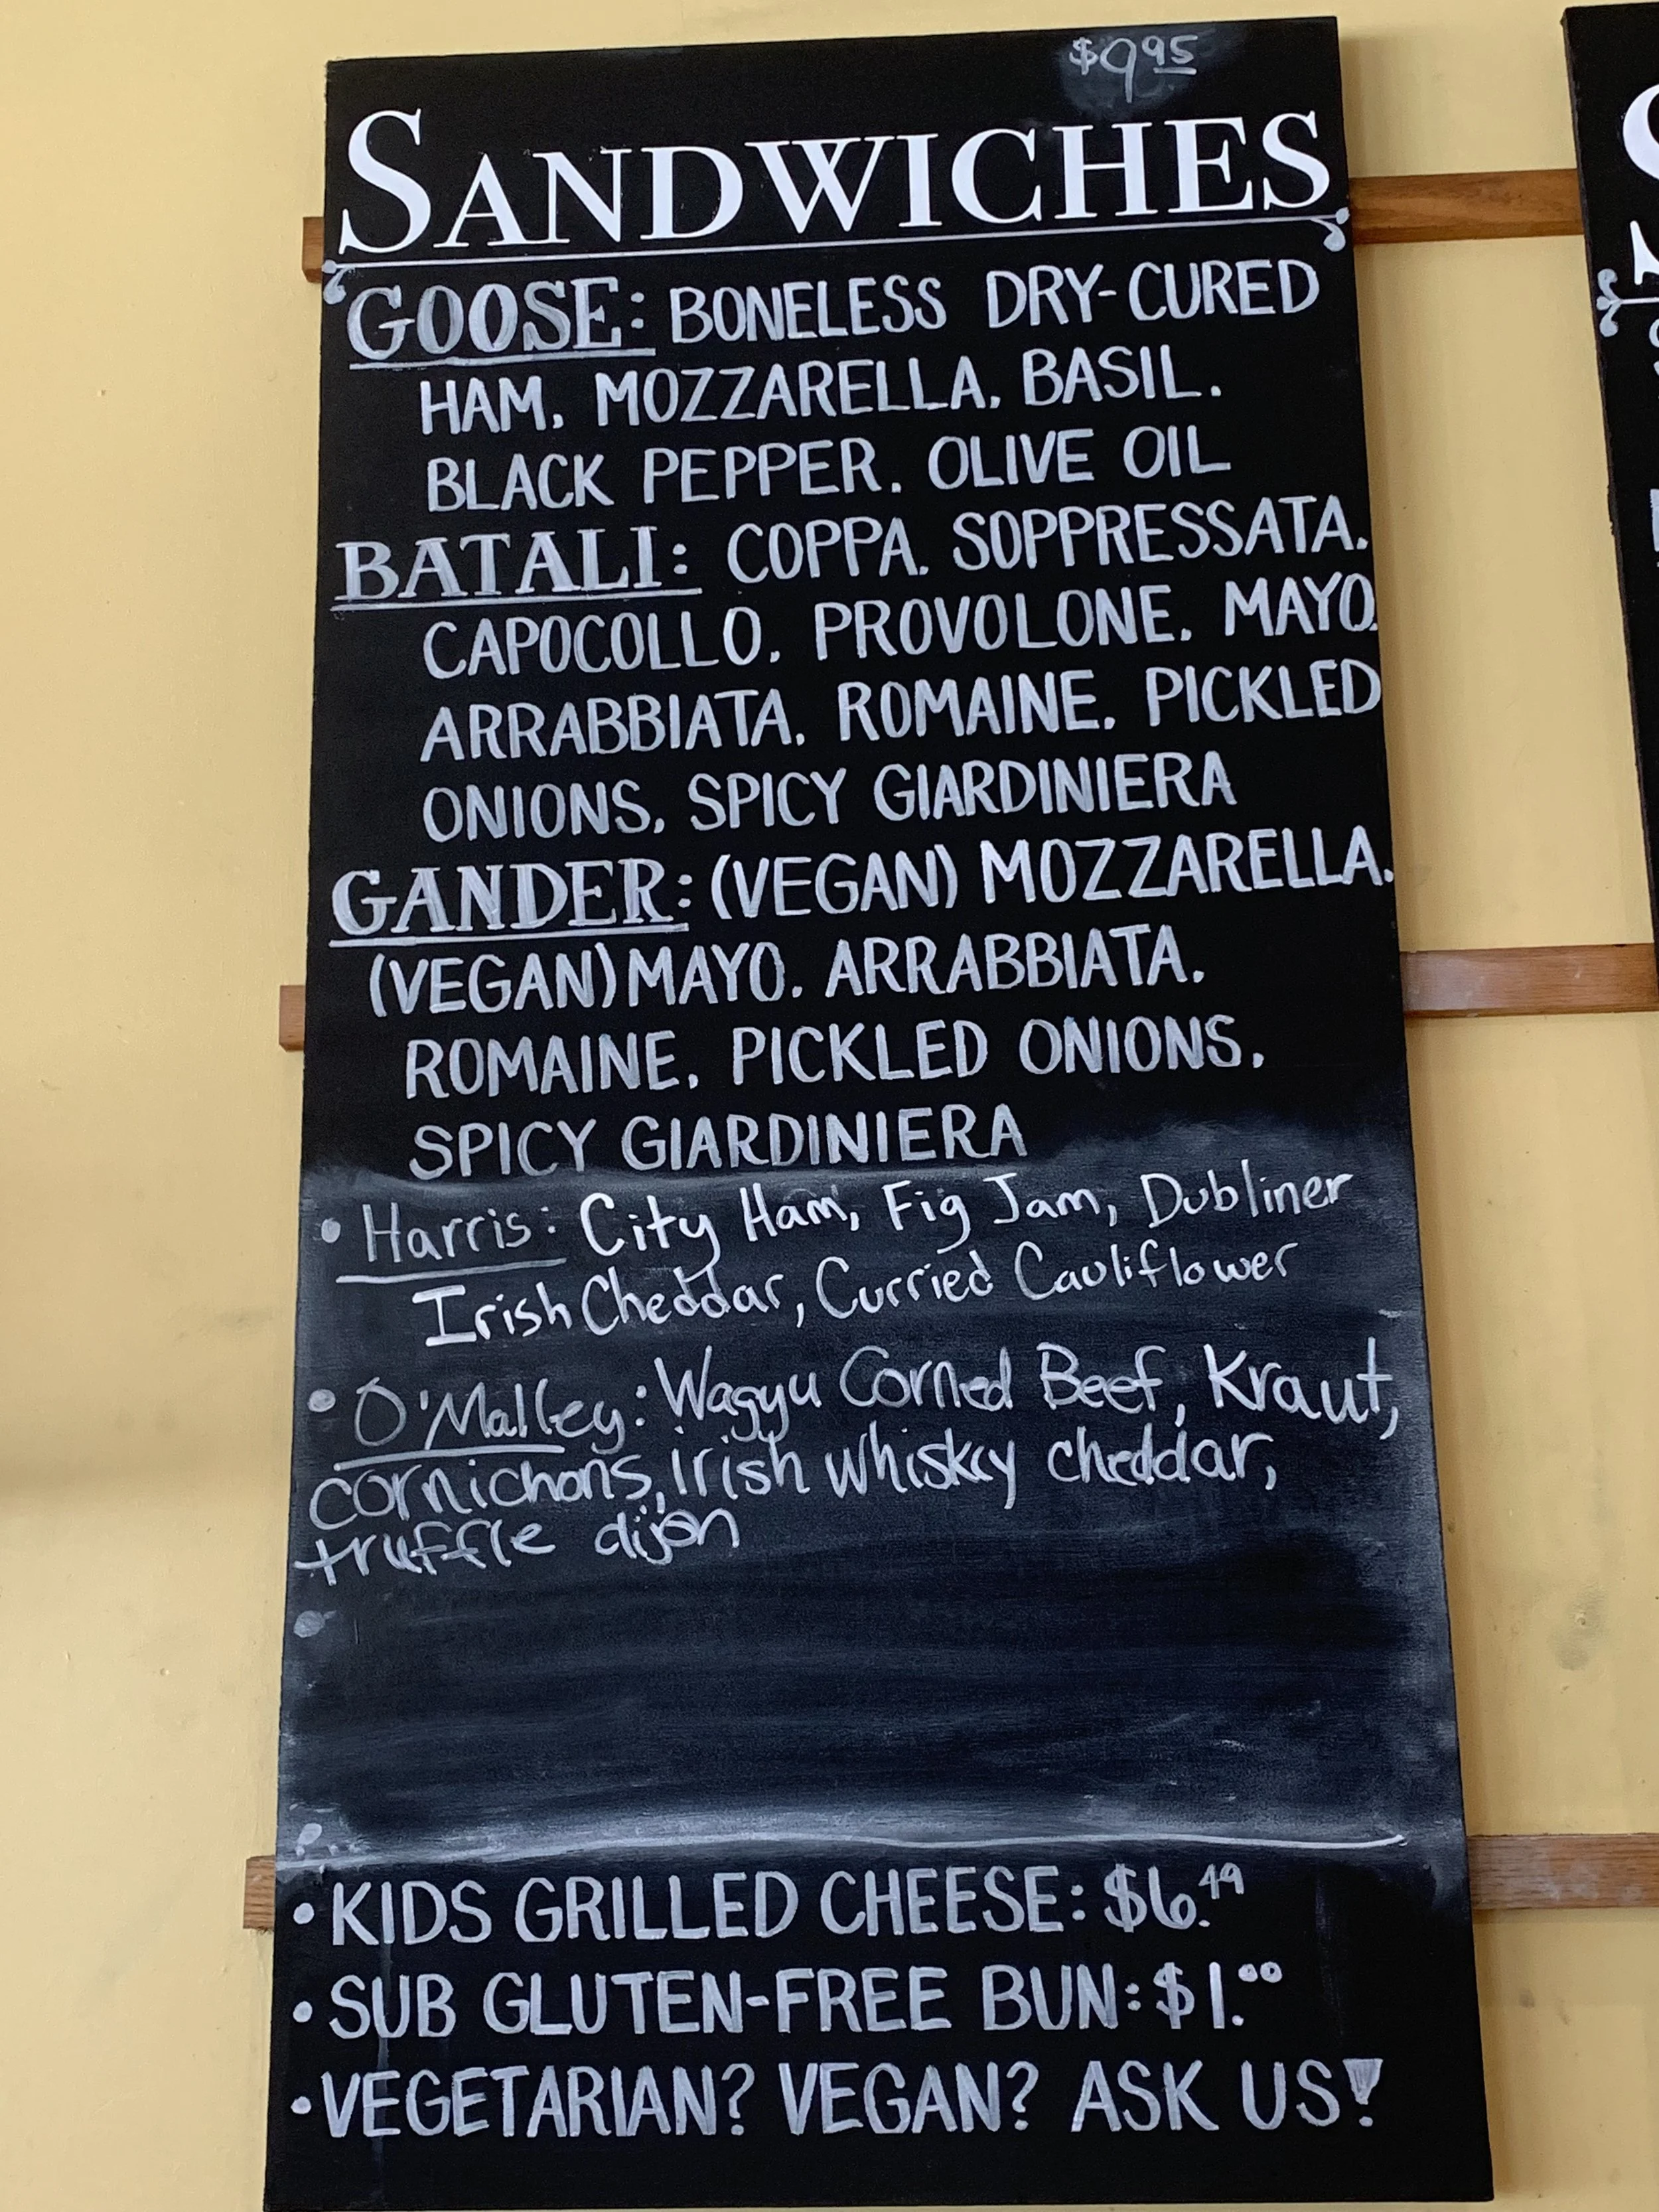 $9.95
SANDWICHES
GOOSE: BONELESS DRY-CURED
HAM, MOZZARELLA, BASIL,
BLACK PEPPER, OLIVE OIL
BATALI: COPPA, SOPPRESSATA,
CAPOCOLLO, PROVOLONE, MAYO,
ARRABBIATA, ROMAINE, PICKLED
ONIONS, SPICY GIARDINIERA
GANDER: (VEGAN) MOZZARELLA,
(VEGAN) MAYO, ARRABBIATA,
ROMAINE, PICKLED ONIONS,
SPICY GIARDINIERA
• Harris: City Ham, Fig Jam, Dubliner
Irish Cheddar, Curried Cauliflower
• O'Malley: Wagyu Corned Beef, Kraut,
cornichons, irish whiskey cheddar,
truffle dijon
• KIDS GRILLED CHEESE: $6.49
• SUB GLUTEN-FREE BUN: $1.00
• VEGETARIAN? VEGAN? ASK US!